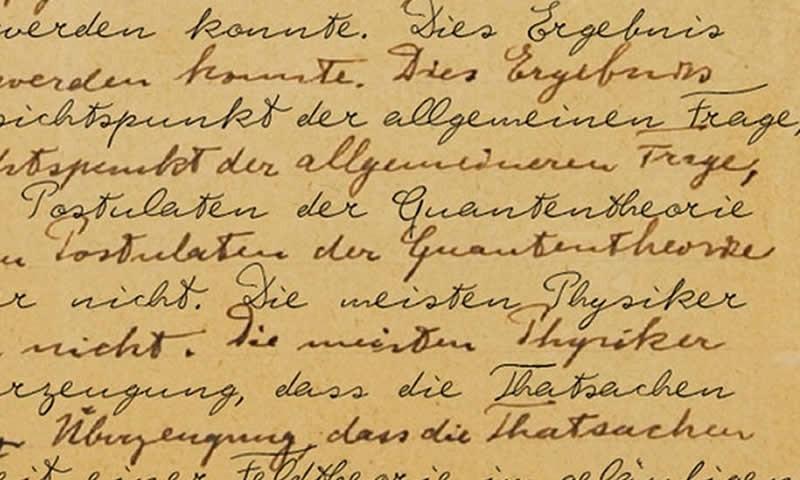 werden konnte. Dies Ergebnis
werden konnte. Dies Ergebnis
sichtspunkt der allgemeinen Frage,
htspunkt der allgemeineren Frage,
Postulaten der Quantentheorie
Postulaten der Quantentheorie
r nicht. Die meisten Physiker
nicht. Die meisten Physiker
rzeugung, dass die Thatsachen
Überzeugung, dass die Thatsachen
eit einer Feldtheorie im geläufigen